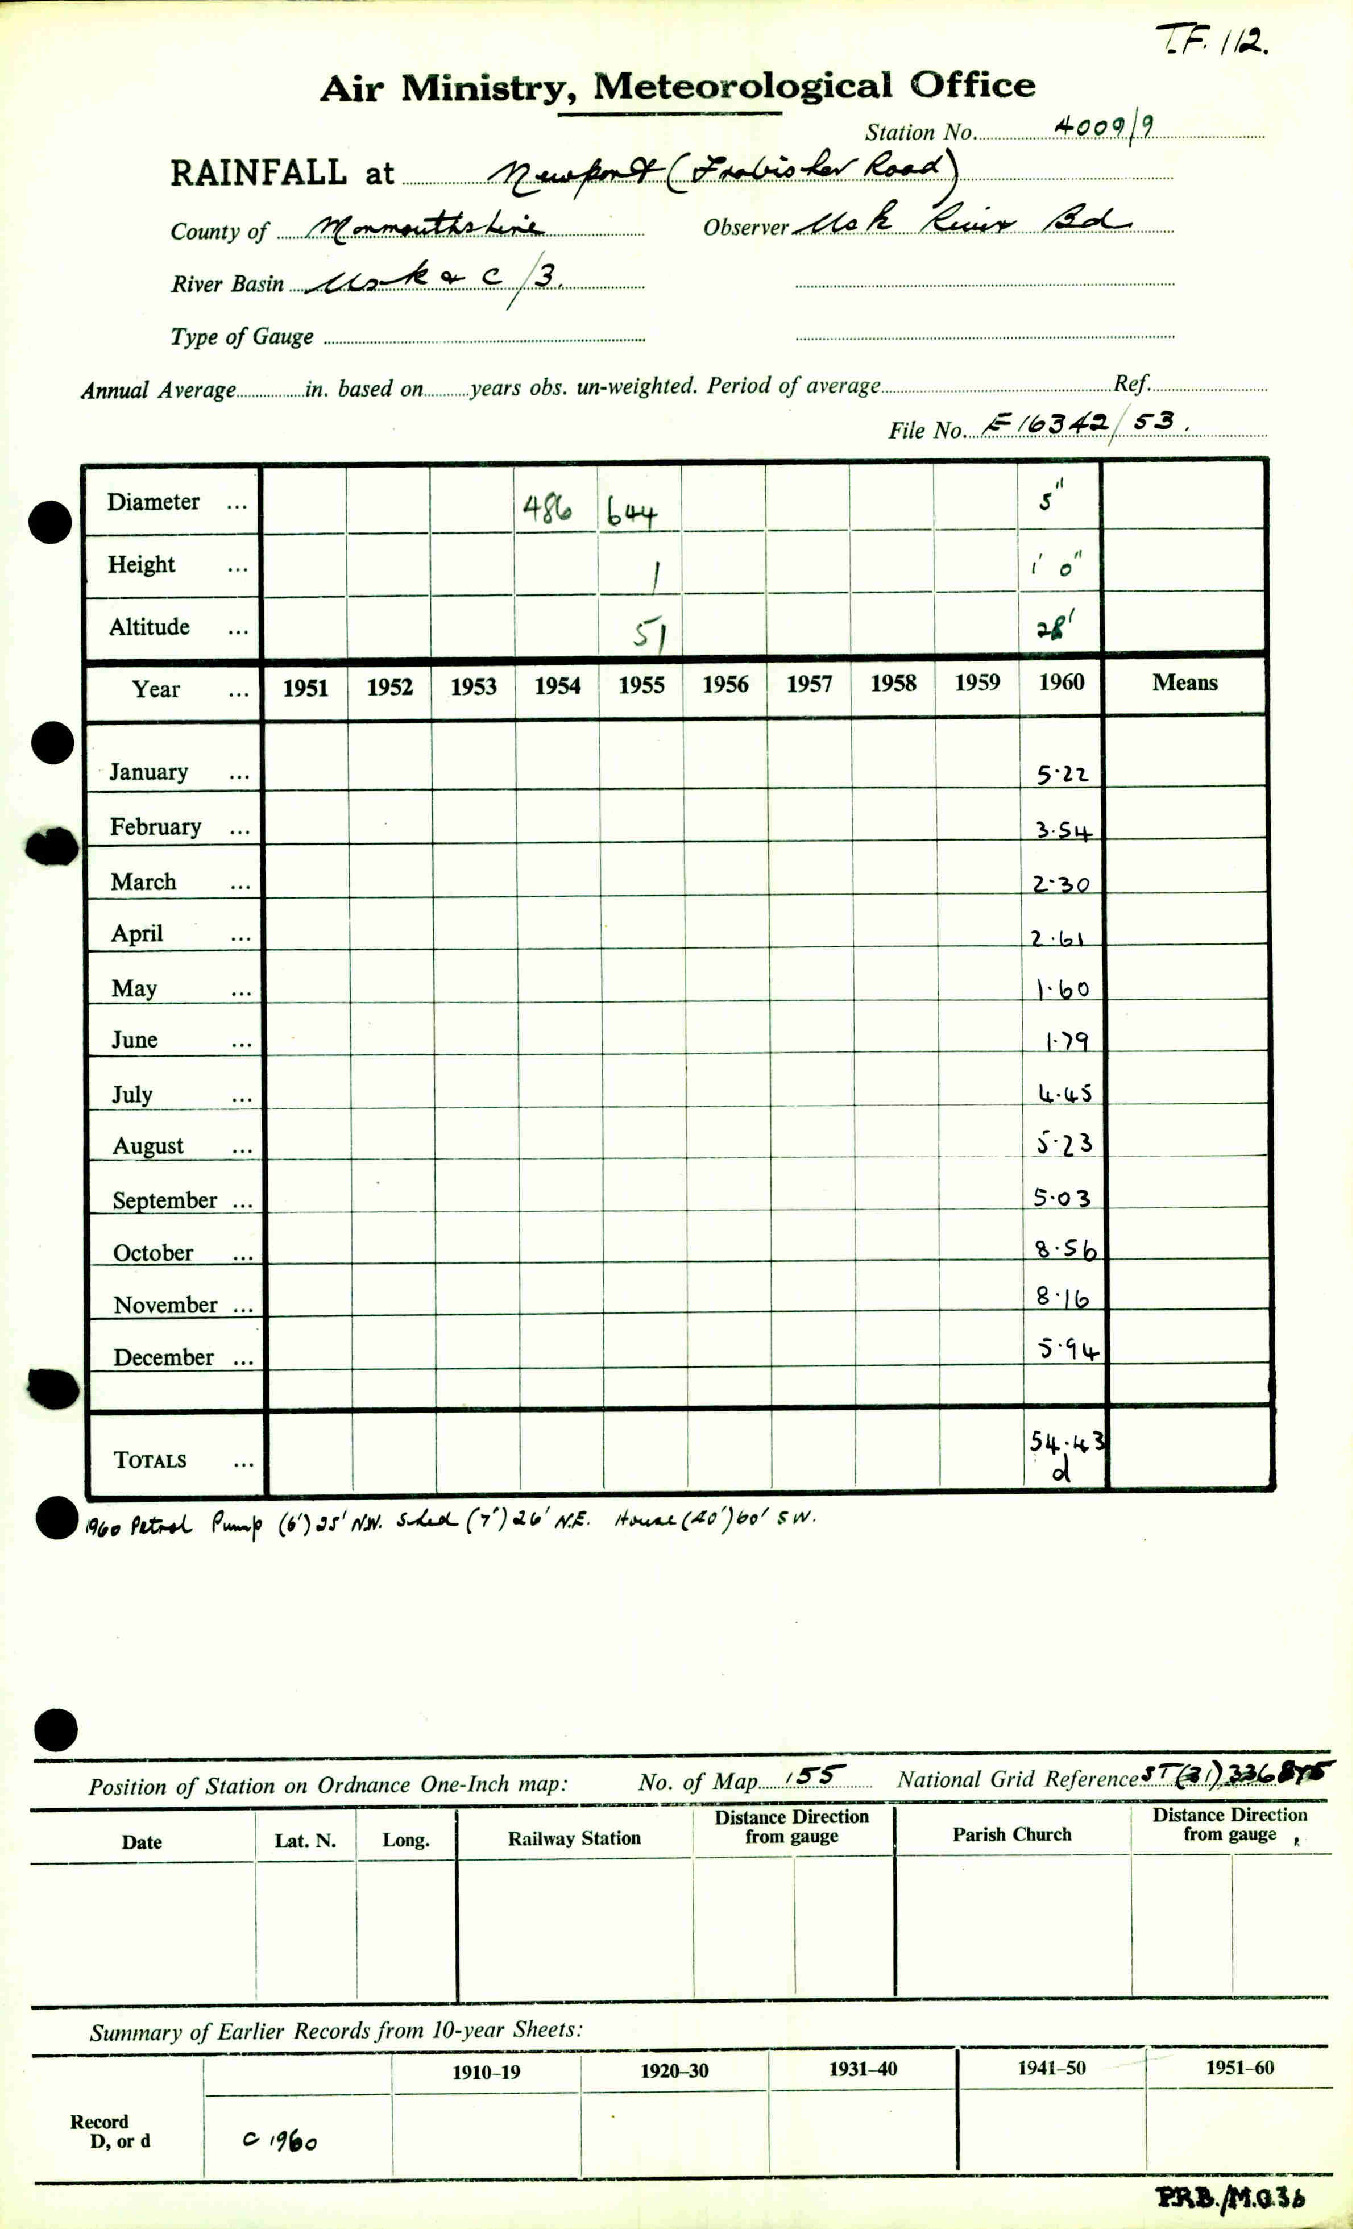 T.F. 112.
Air Ministry, Meteorological Office
Station No. 4009/9
RAINFALL at Newport (Frobisher Road)
County of Monmouthshire Observer Usk River Bd
River Basin Usk & C/3.
Type of Gauge
Annual Average in. based on years obs. un-weighted. Period of average Ref.
File No. E16342/53.
Diameter ... 486 644 5"
Height ... 1 1' 0"
Altitude ... 51 28'
Year ... 1951 1952 1953 1954 1955 1956 1957 1958 1959 1960 Means
January ... 5.22
February ... 3.54
March ... 2.30
April ... 2.61
May ... 1.60
June ... 1.79
July ... 4.45
August ... 5.23
September ... 5.03
October ... 8.56
November ... 8.16
December ... 5.94
TOTALS ... 54.43
d
1960 Petrol Pump (6') 25' N.W. Shed (7') 26' N.E. House (20') 60' S W.
Position of Station on Ordnance One-Inch map: No. of Map 155 National Grid Reference ST (31) 336
Date Lat. N. Long. Railway Station Distance Direction from gauge Parish Church Distance Direction from gauge
Summary of Earlier Records from 10-year Sheets:
1910–19 1920–30 1931–40 1941–50 1951–60
Record
D, or d C 1960
P.R.B./M.O.36